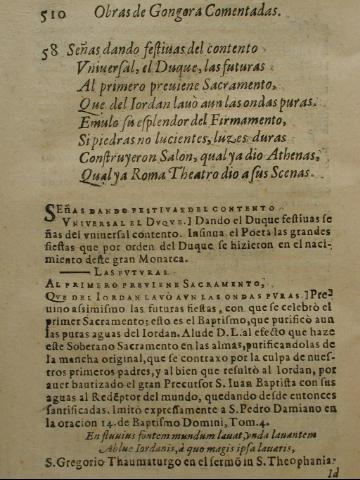 510 Obras de Gongora Comentadas.
58 Señas dando festiuas del contento
Vniuersal, el Duque, las futuras
Al primero preuiene Sacramento,
Que del Iordan lauò aun las ondas puras.
Emulo su esplendor del Firmamento,
Si piedras no lucientes, luzes duras
Construyeron Salon, qual ya dio Athenas,
Qual ya Roma Theatro dio a sus Scenas.
SEÑAS DANDO FESTIVAS DEL CONTENTO
VNIVERSAL EL DVQVE.] Dando el Duque festiuas se
ñas del vniuersal contento. Insinua el Poeta las grandes
fiestas que por orden del Duque se hizieron en el naci-
miento deste gran Monarca.
LAS FVTVRAS
AL PRIMERO PREVIENE SACRAMENTO,
QVE DEL IORDAN LAVÒ AVN LAS ONDAS PVRAS.] Pre
uino assimismo las futuras fiestas, con que se celebrò el
primer Sacramento; esto es el Baptismo, que purificò aun
las puras aguas del Iordan. Alude D. L. al efecto que haze
este Soberano Sacramento en las almas, purificandolas de
la mancha original, que se contraxo por la culpa de nues-
tros primeros padres, y al bien que resultò al Iordan, por
auer bautizado el gran Precursor S. Iuan Baptista con sus
aguas al Redẽptor del mundo, quedando desde entonces
santificadas. Imitò expressamente a S. Pedro Damiano en
la oracion 14. de Baptismo Domini, Tom. 4.
En fluuius fontem mundum lauat, vnda lauantem
Ablue Iordanis, à quo magis ipsa lauaris,
S. Gregorio Thaumaturgo en el sermõ in S. Theophania:
Id